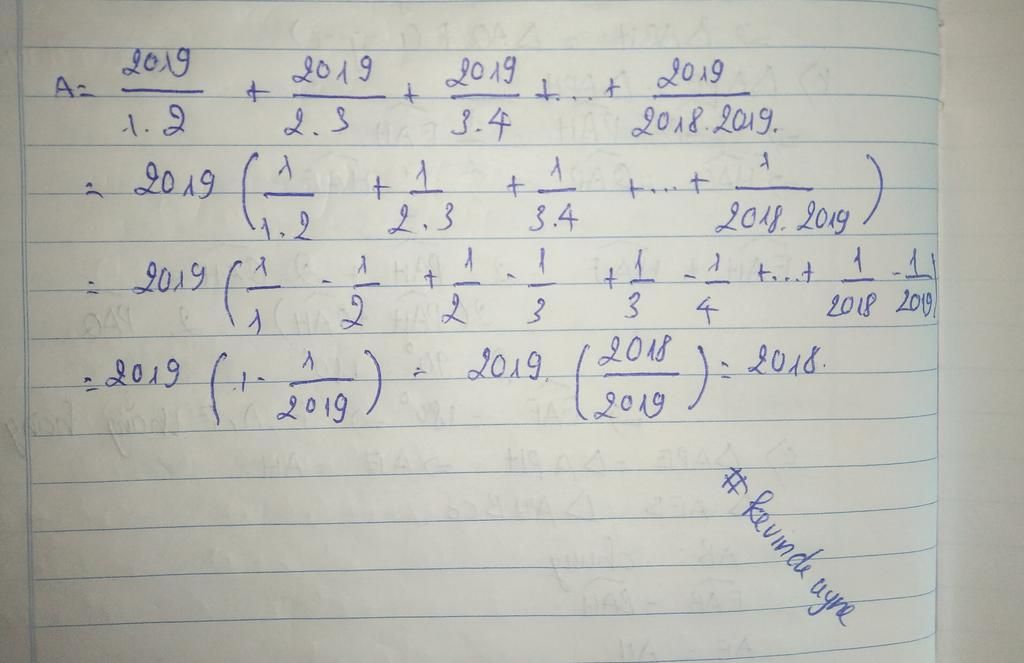 A = 2019/1.2 + 2019/2.3 + 2019/3.4 + ... + 2019/2018.2019.
= 2019 (1/1.2 + 1/2.3 + 1/3.4 + ... + 1/2018.2019)
= 2019 (1/1 - 1/2 + 1/2 - 1/3 + 1/3 - 1/4 + ... + 1/2018 - 1/2019)
= 2019 (1 - 1/2019) = 2019. (2018/2019) = 2018.
# kevinde uyne